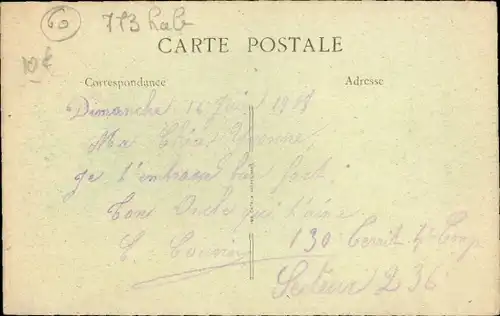 60
713 hab
10€
CARTE POSTALE
Correspondance
Adresse
Dimanche 16 Juin 1918
Ma Chère Yvonne,
je t'embrasse bien fort.
Ton Oncle qui t'aime
130 Territ 4e Comp
Secteur 236